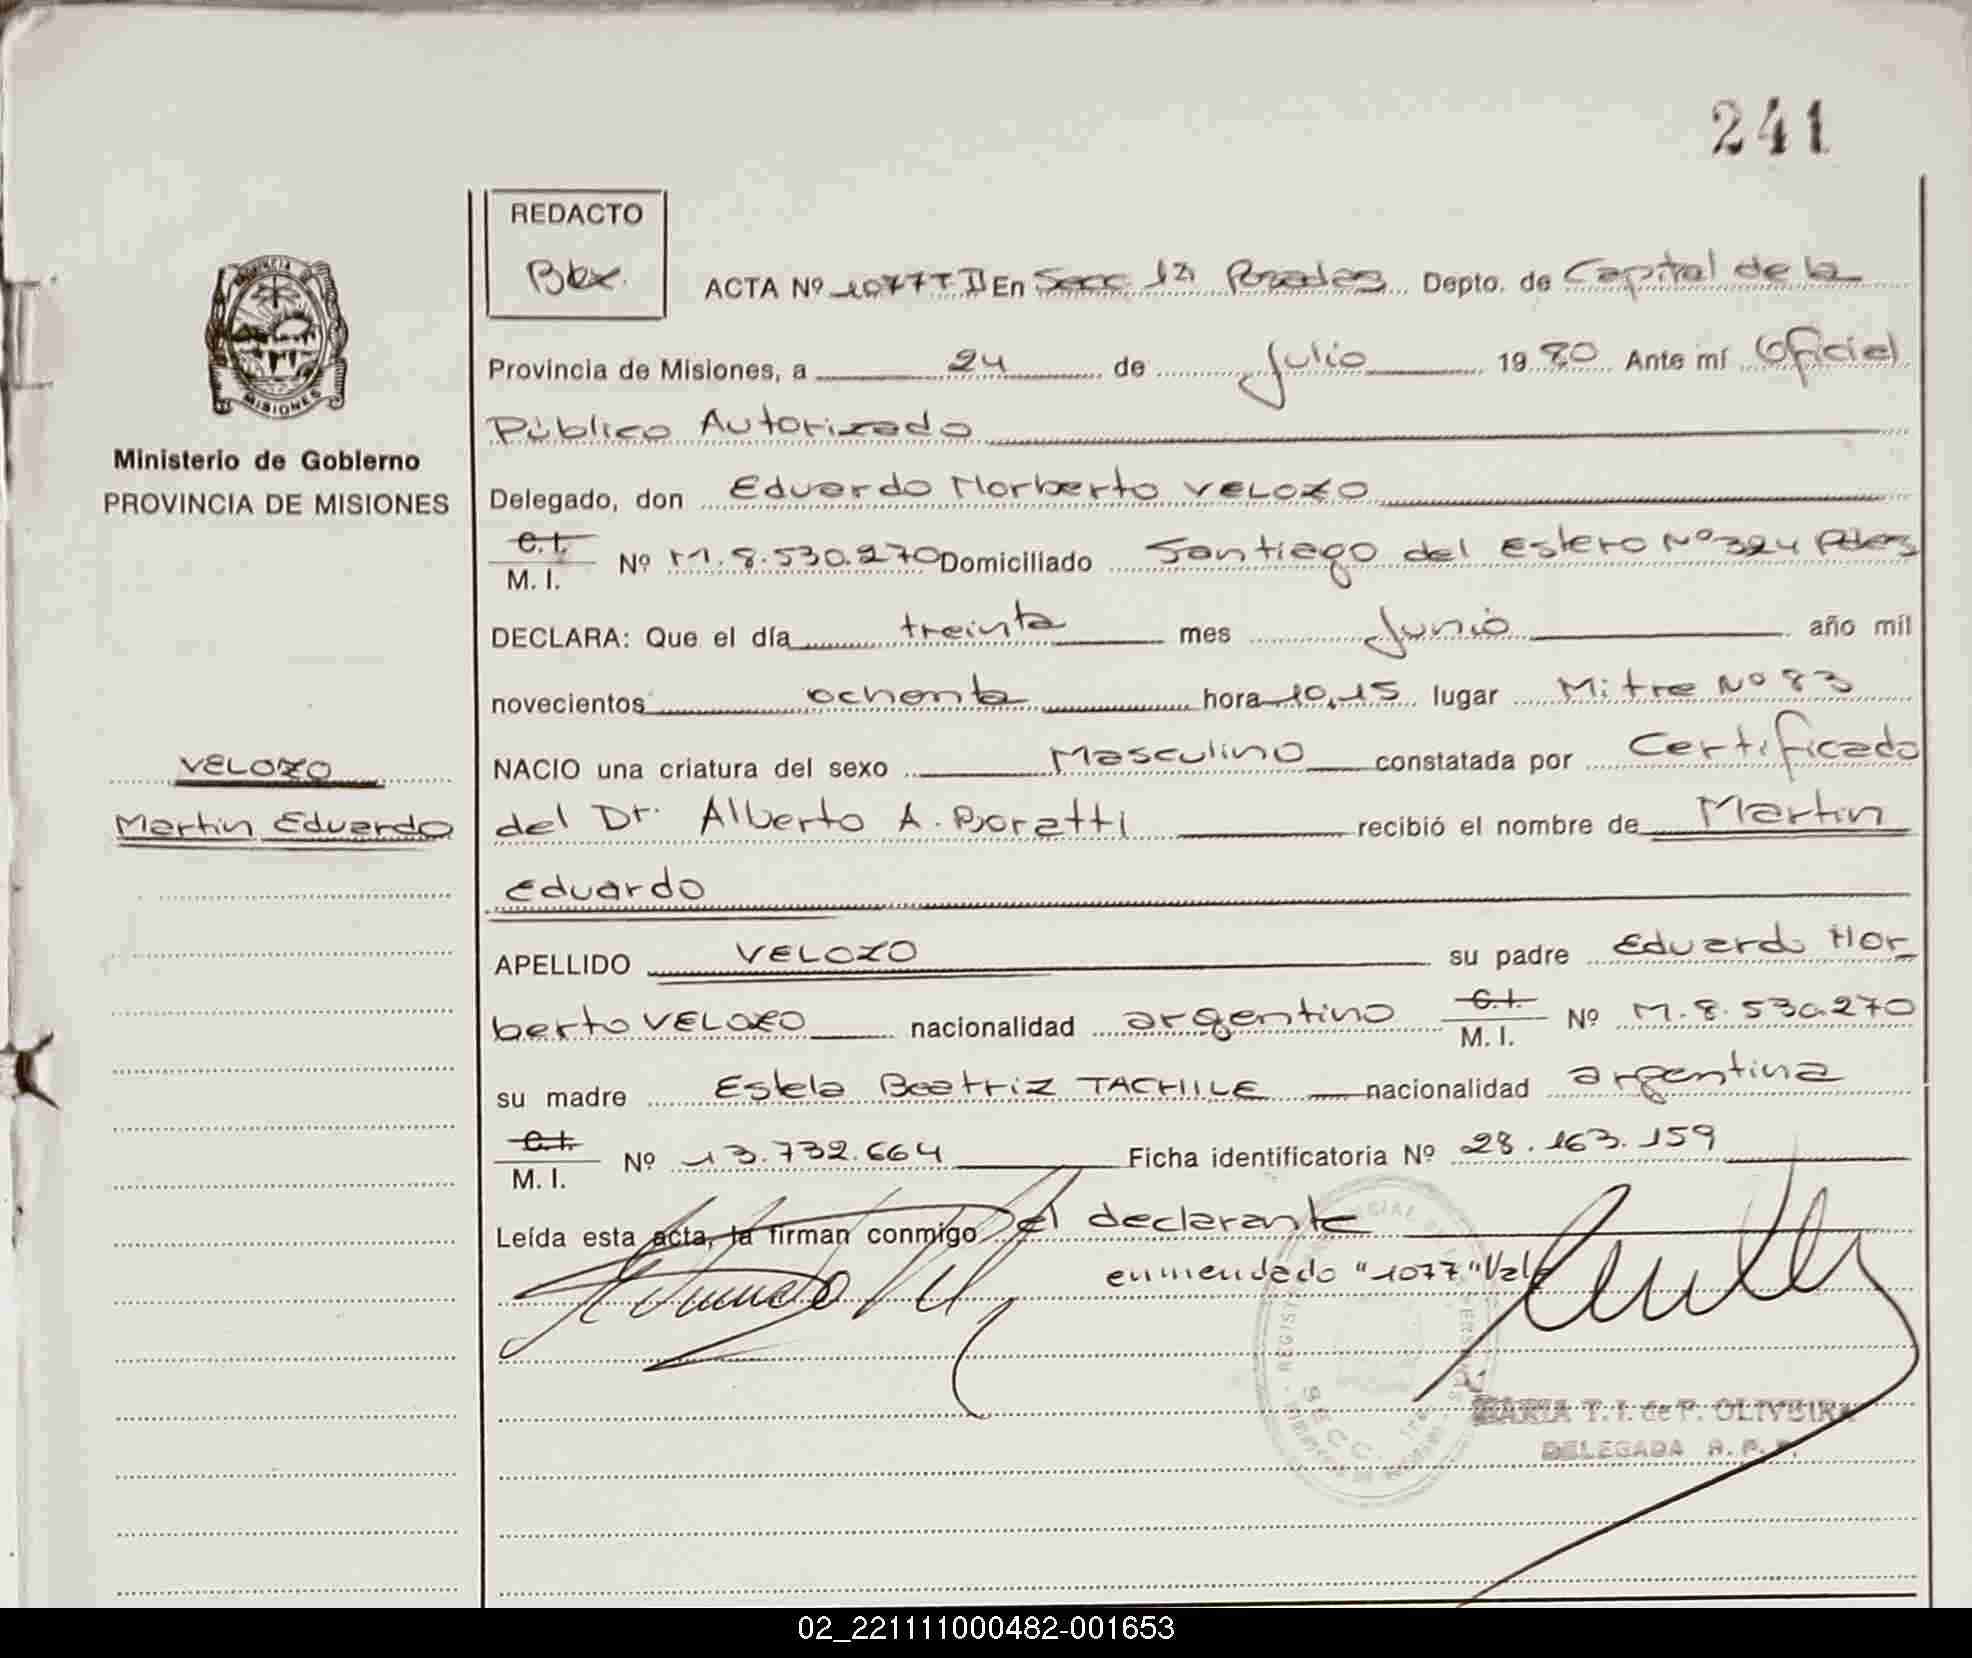 241
REDACTO
Bex.
ACTA Nº 1077 T II En Secc 1ra Posadas Depto. de Capital de la
Provincia de Misiones, a 24 de Julio 1980 Ante mí Oficial
Público Autorizado
Delegado, don Eduardo Norberto VELOZO
C.I.
M. I. Nº M.8.530.270 Domiciliado Santiago del Estero Nº 324 Pdas
DECLARA: Que el día treinta mes Junio año mil
novecientos ochenta hora 10,15 lugar Mitre Nº 83
NACIO una criatura del sexo Masculino constatada por Certificado
del Dr. Alberto A. Boratti recibió el nombre de Martin
Eduardo
APELLIDO VELOZO su padre Eduardo Nor
berto VELOZO nacionalidad argentino C.I.
M. I. Nº M.8.530.270
su madre Estela Beatriz TACHILE nacionalidad argentina
C.I.
M. I. Nº 13.732.664 Ficha identificatoria Nº 28.163.159
Leída esta acta, la firman conmigo el declarante
enmendado "1077" Vale
MARIA T. I. de P. OLIVEIRA
DELEGADA R. P. P.
PROVINCIA DE
MISIONES
Ministerio de Gobierno
PROVINCIA DE MISIONES
VELOZO
Martin Eduardo
02_221111000482-001653